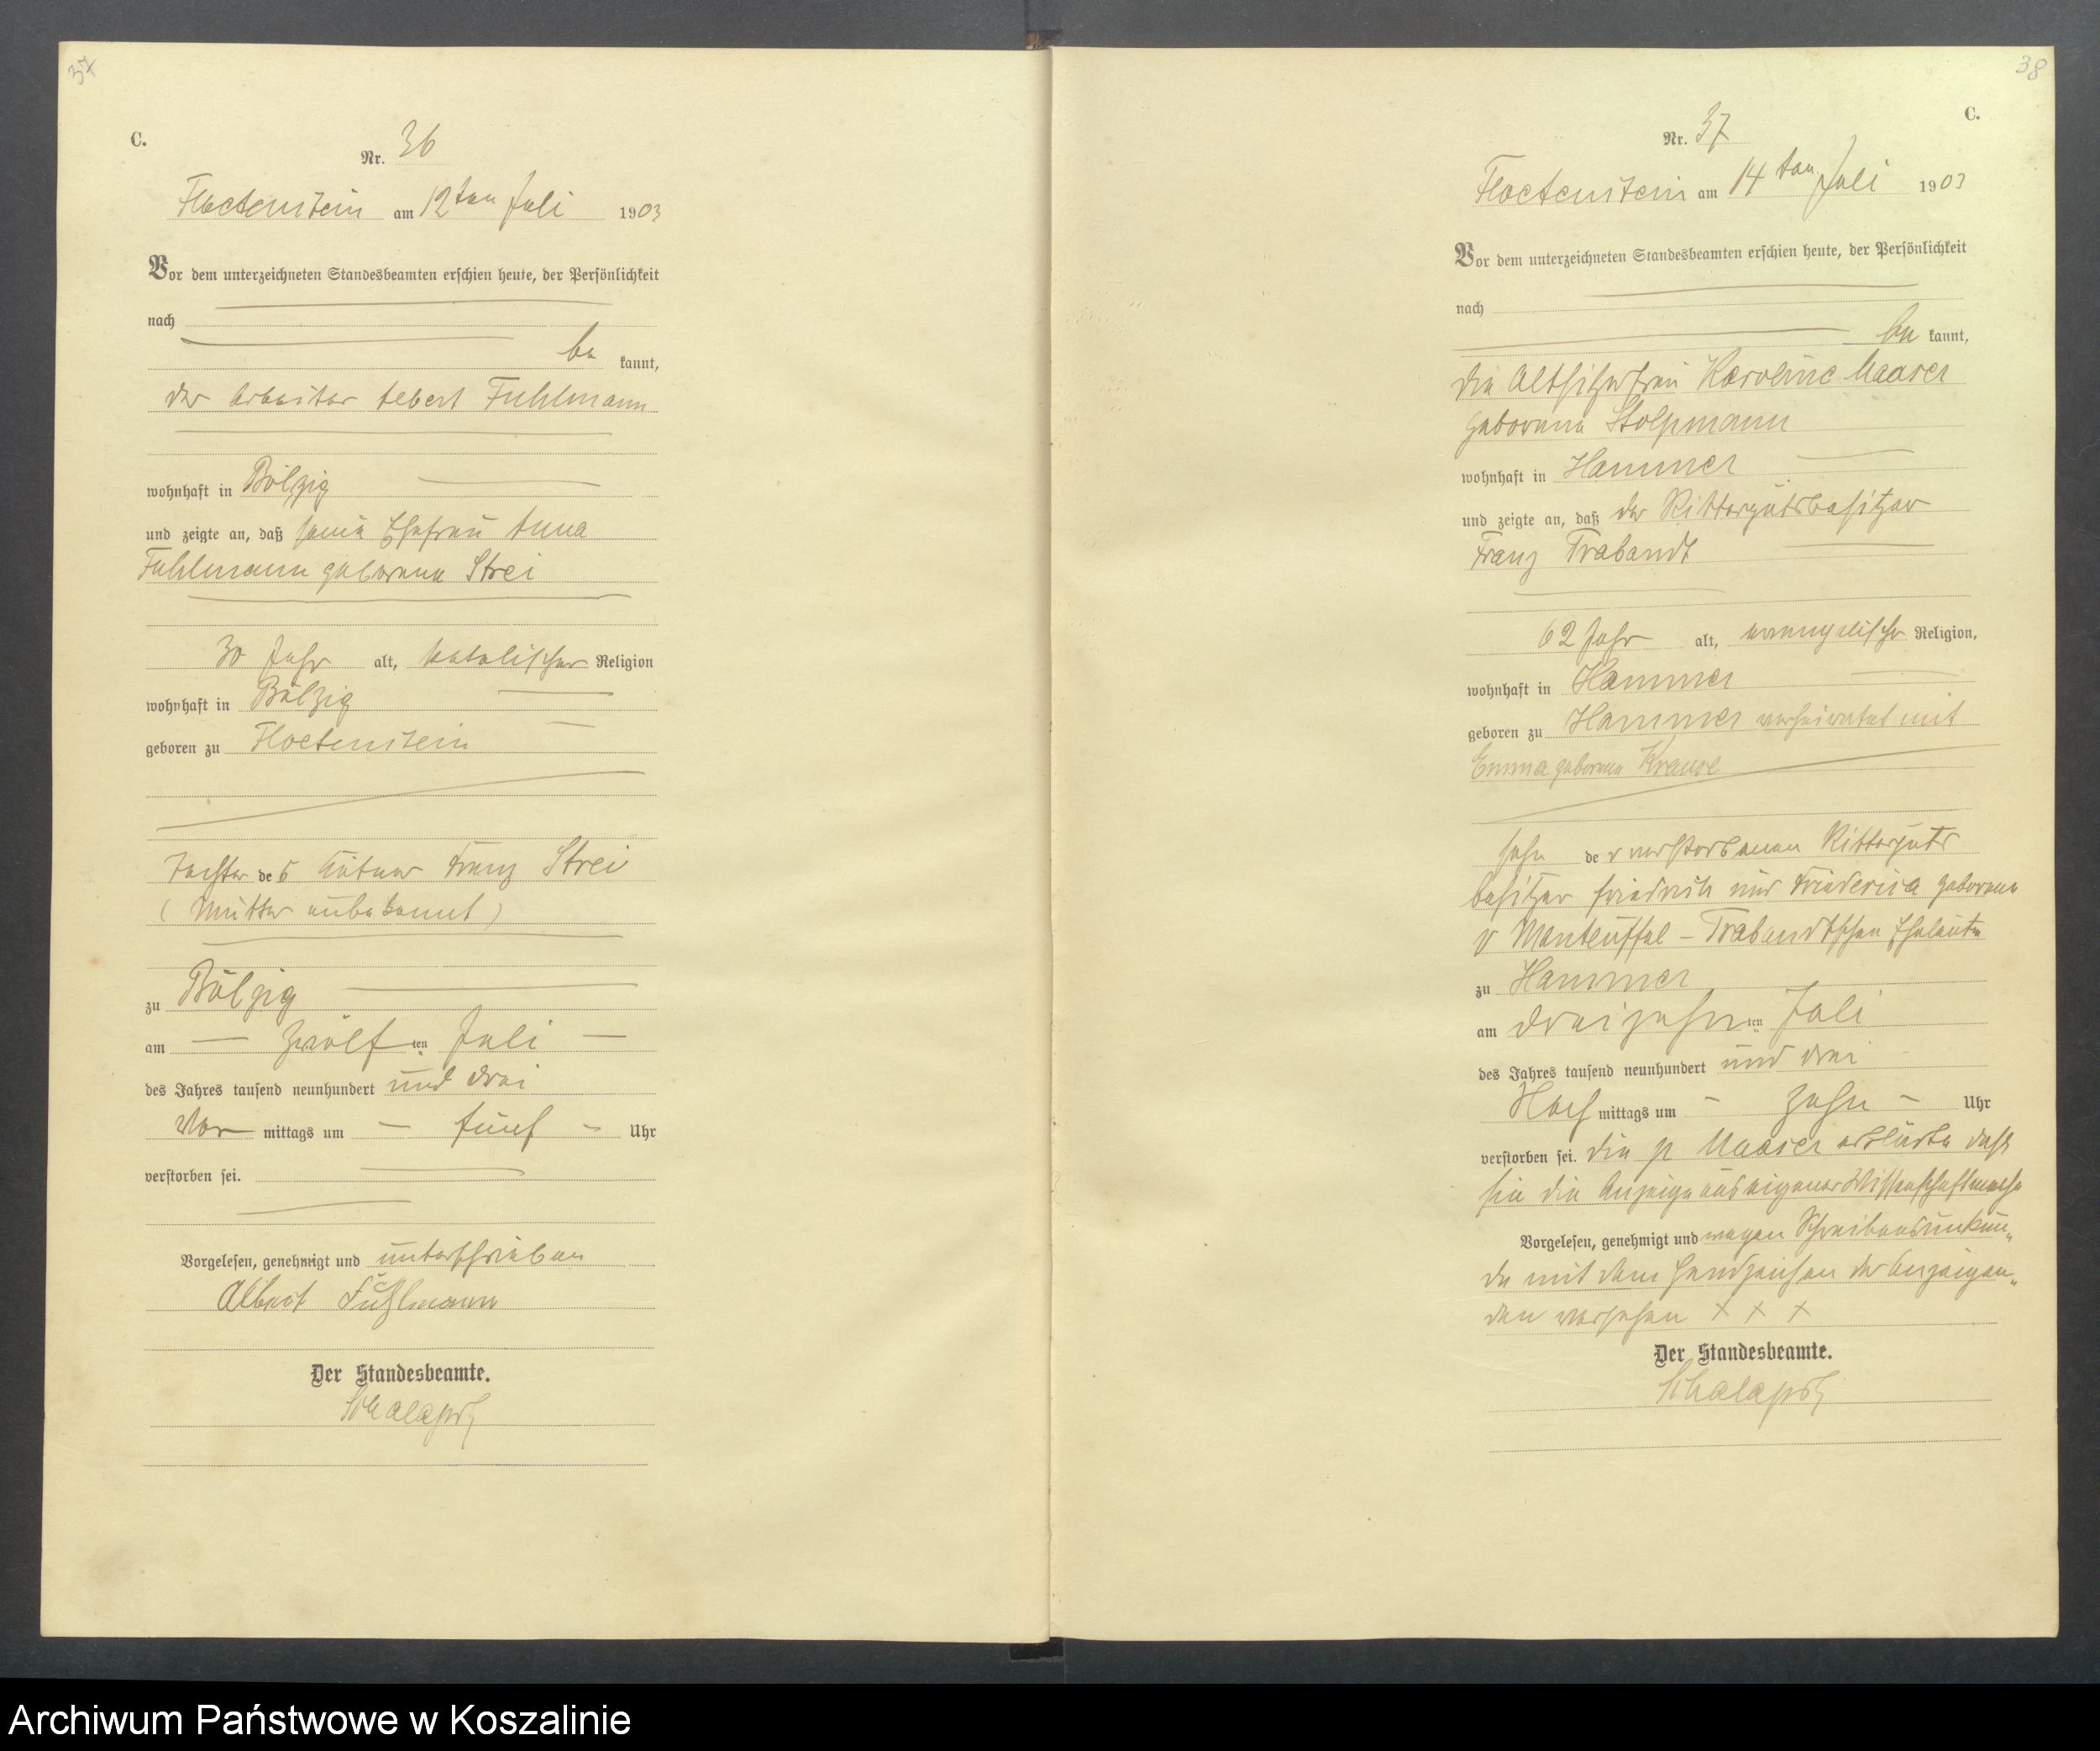 37
C.
Nr. 36
Floetenstein am 12ten Juli 1903
Vor dem unterzeichneten Standesbeamten erschien heute, der Persönlichkeit
nach
be kannt,
der Arbeiter Albert Fuhlmann
wohnhaft in Bölzig
und zeigte an, daß seine Ehefrau Anna
Fuhlmann geborene Strei
30 Jahr alt, katolischer Religion
wohnhaft in Bölzig
geboren zu Floetenstein
Tochter des Kätner Franz Strei
(Mutter unbekannt)
zu Bölzig
am zwölf ten Juli
des Jahres tausend neunhundert und drei
Vor mittags um fünf Uhr
verstorben sei.
Vorgelesen, genehmigt und unterschrieben
Albert Fuhlmann
Der Standesbeamte.
38
C.
Nr. 37
Floetenstein am 14ten Juli 1903
Vor dem unterzeichneten Standesbeamten erschien heute, der Persönlichkeit
nach
be kannt,
die Altsitzerfrau Karoline Maaser
geborene Stolpmann
wohnhaft in Hammer
und zeigte an, daß der Rittergutsbesitzer
Franz Trabandt
62 Jahr alt, evangelischer Religion,
wohnhaft in Hammer
geboren zu Hammer verheiratet mit
Emma geborene Krause
Sohn der verstorbenen Ritterguts
besitzer Friedrich und Friederica geborene
v Manteuffel - Trabandtschen Eheleute
zu Hammer
am dreizehn ten Juli
des Jahres tausend neunhundert und drei
Nach mittags um zehn Uhr
verstorben sei. die p Maaser erklärte daß
sie die Anzeige aus eigener Wissenschaft mache
Vorgelesen, genehmigt und wegen Schreibensunkun„
de mit dem Handzeichen der Anzeigen„
den versehen X X X
Der Standesbeamte.
Archiwum Państwowe w Koszalinie